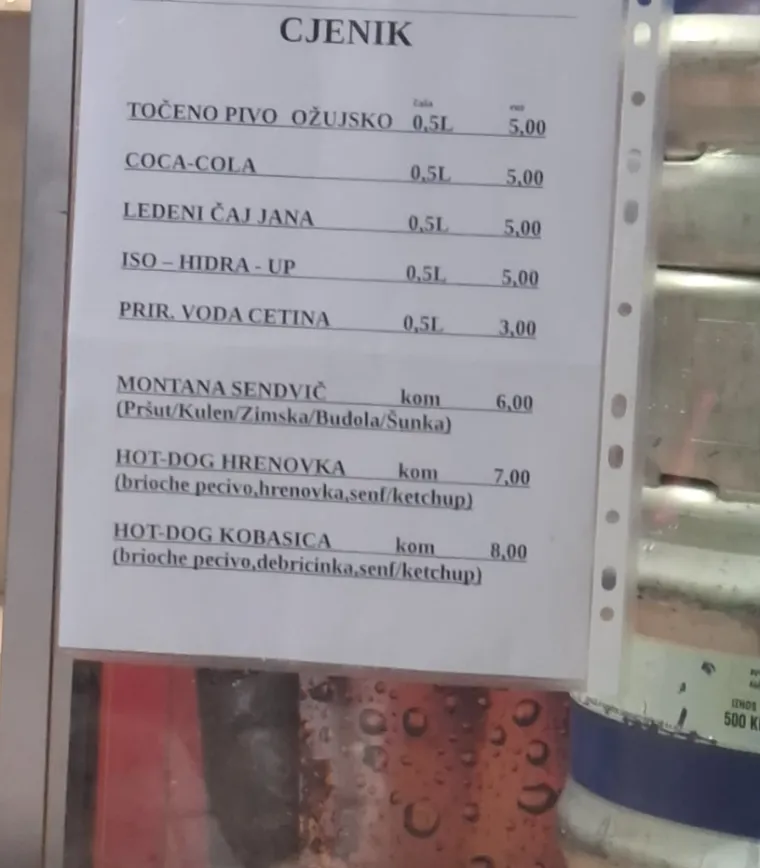 CJENIK
čaša eur
TOČENO PIVO OŽUJSKO 0,5L 5,00
COCA-COLA 0,5L 5,00
LEDENI ČAJ JANA 0,5L 5,00
ISO – HIDRA - UP 0,5L 5,00
PRIR. VODA CETINA 0,5L 3,00
MONTANA SENDVIČ kom 6,00
(Pršut/Kulen/Zimska/Budola/Šunka)
HOT-DOG HRENOVKA kom 7,00
(brioche pecivo,hrenovka,senf/ketchup)
HOT-DOG KOBASICA kom 8,00
(brioche pecivo,debricinka,senf/ketchup)
IZNOS
500 K